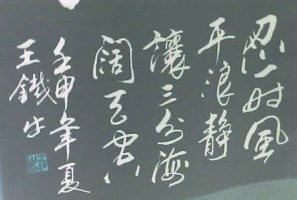 忍一时风
平浪静
让三分海
阔天空
壬申年夏
王铁牛